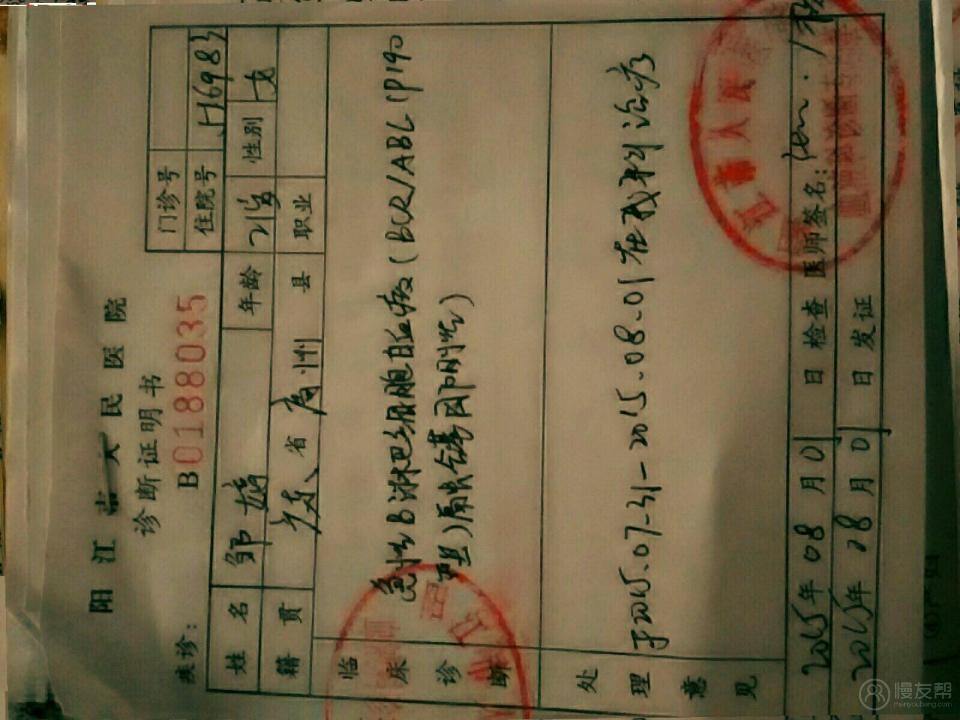 阳江市人民医院
诊断证明书
疾诊: B0188035
门诊号
住院号 J16983
姓名 邹 年龄 21岁 性别 女
籍贯 广东 省 广州 县 职业
临床诊断
急性B淋巴细胞白血病(BCR/ABL(P190
)融合基因阳性)
处理意见
于2015.07-31-2015.08.01在我科治疗
2015年08月01日检查 医师签名:
2015年08月01日发证
慢友帮
manyoubang.com